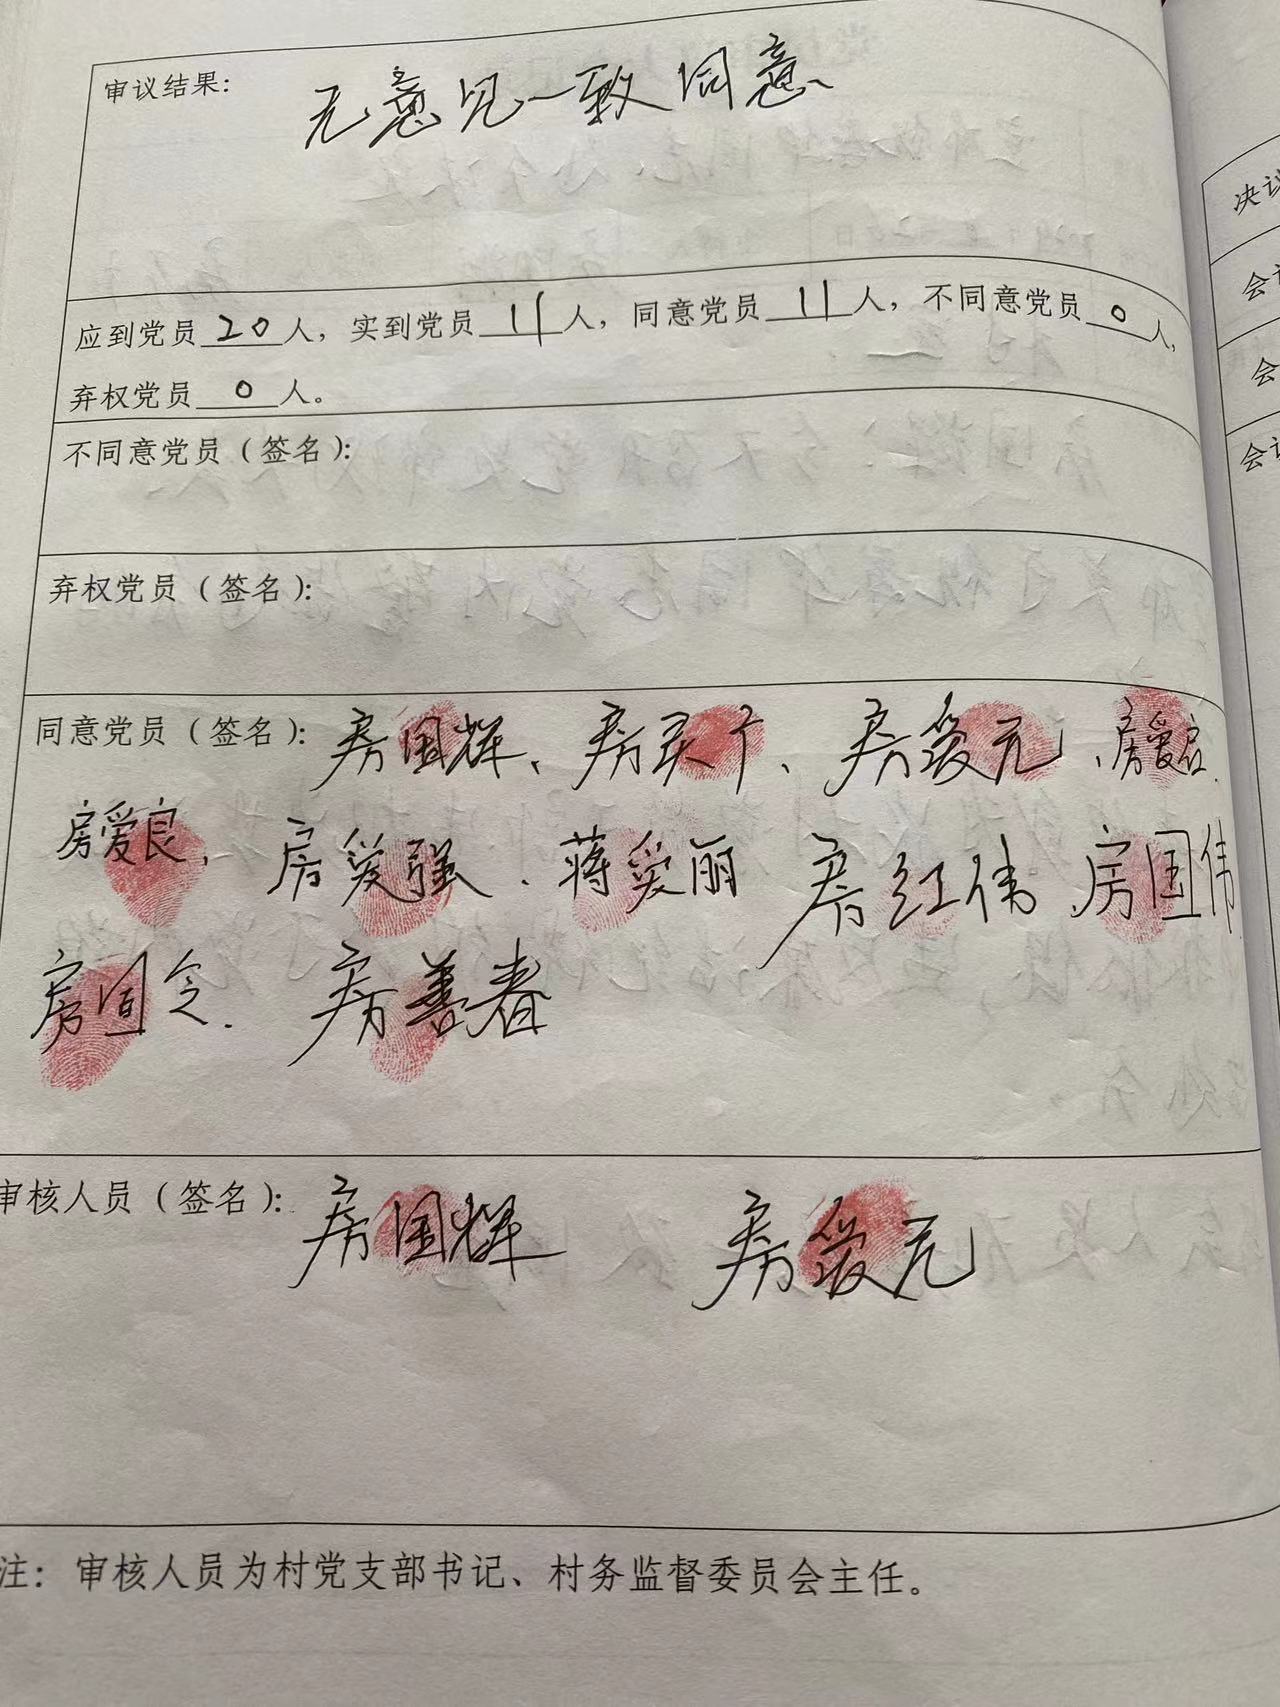 审议结果：
无意见一致同意
应到党员20人，实到党员11人，同意党员11人，不同意党员0人，
弃权党员0人。
不同意党员（签名）：
弃权党员（签名）：
同意党员（签名）：房国辉、房灵个、房爱元、房爱启
房爱良，房爱强．蒋爱丽 房红伟 房国伟
房国令．房善春
审核人员（签名）：房国辉 房爱元
注：审核人员为村党支部书记、村务监督委员会主任。
决议
会议
会
会议